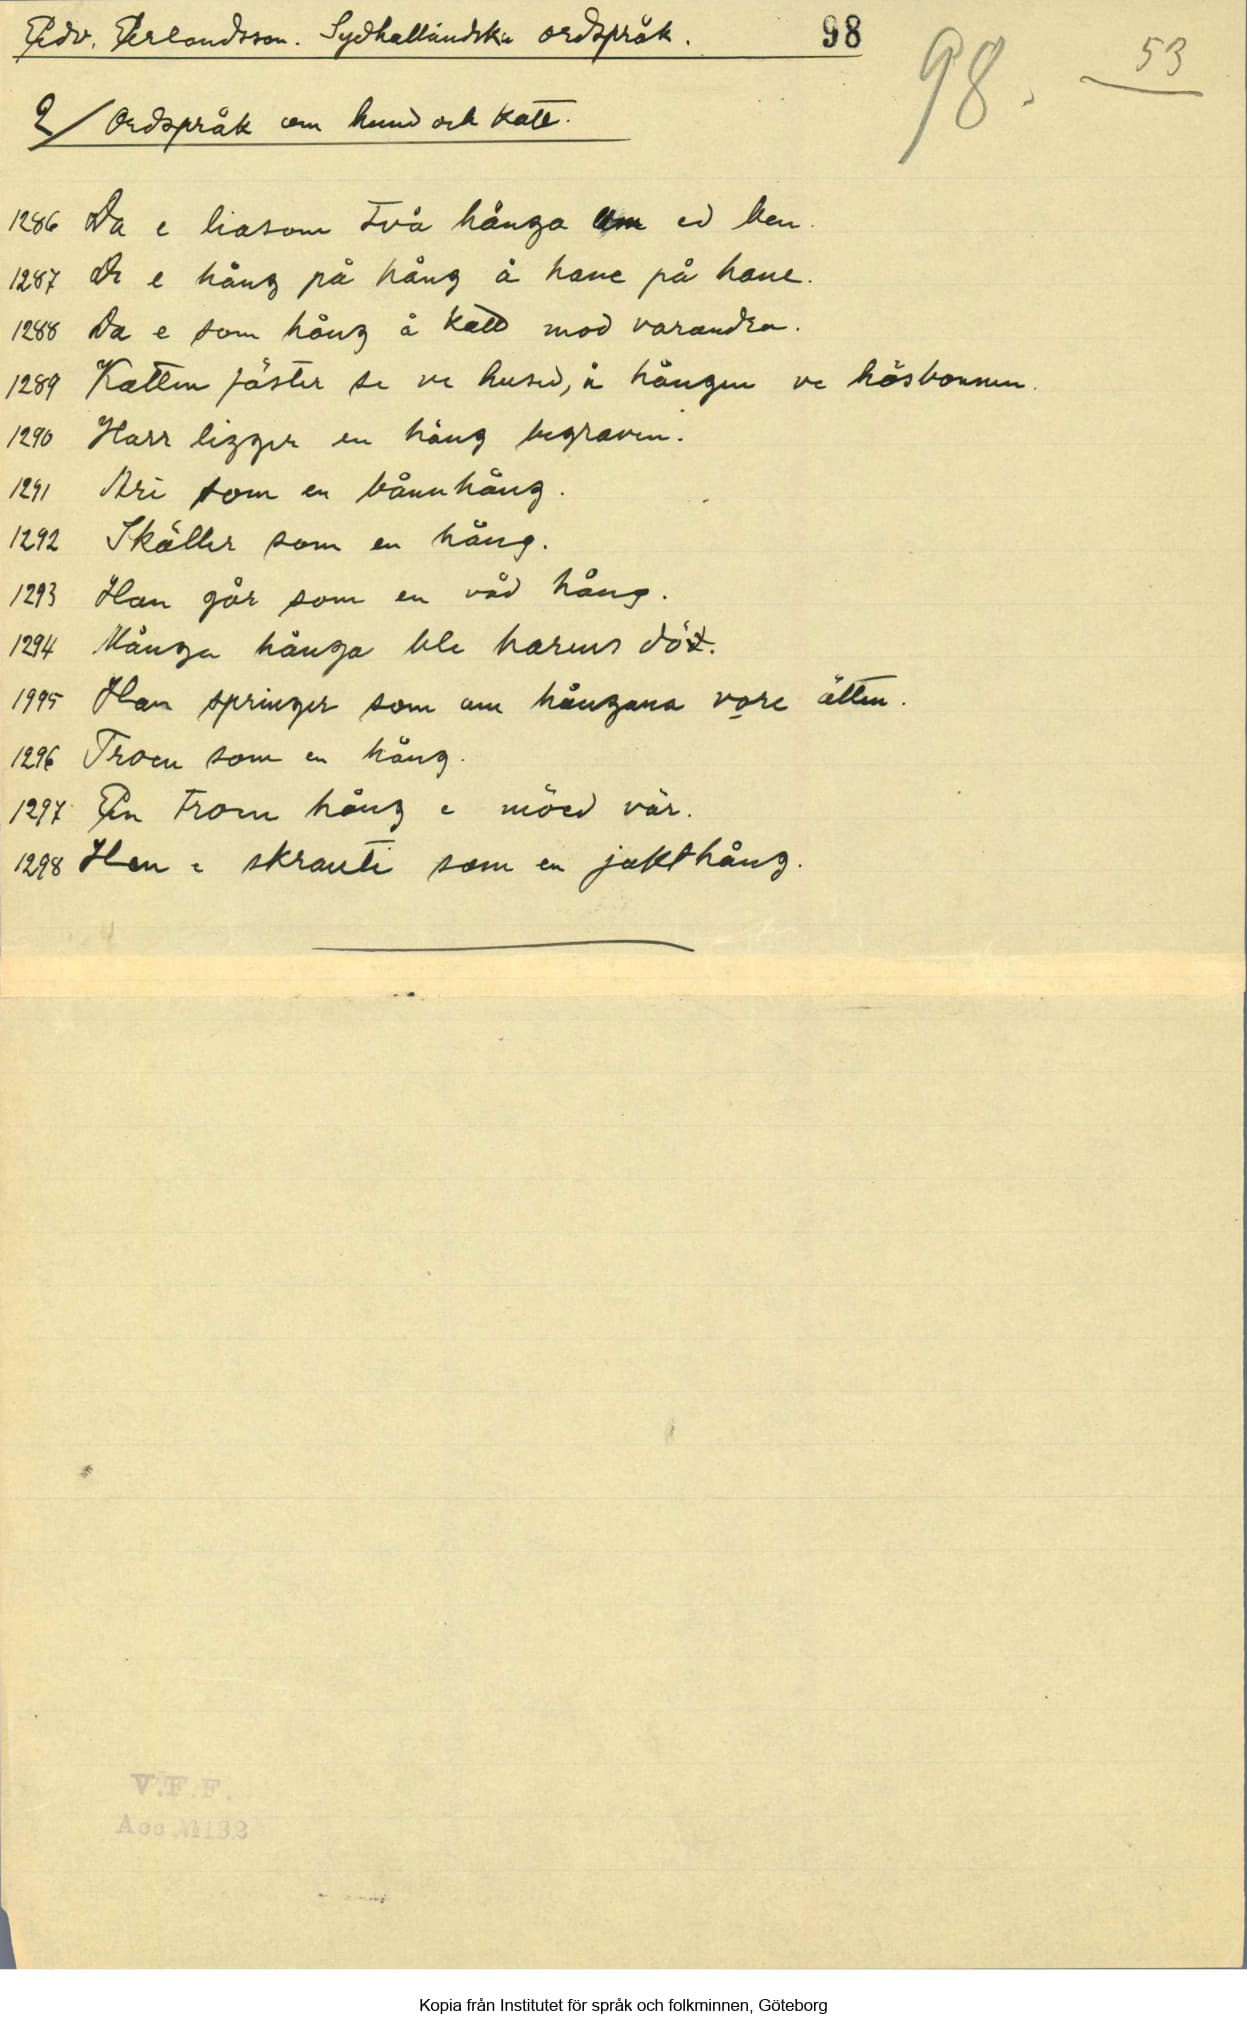 Edv. Erlandsson. Sydhalländska ordspråk. 98
98. 53
2/ Ordspråk om hund och katt.
1286 Da e liasom två hånga om ed ben.
1287 De e hång på hång å hane på hane.
1288 Da e som hång å katt mod varandra.
1289 Katten fäster se ve hused, å hången ve hösbonnen.
1290 Harr ligger en hång begraven.
1291 Arri som en bånnhång.
1292 Skäller som en hång.
1293 Han går som en våd hång.
1294 Många hånga ble harens död.
1995 Han springer som om hångana vore ätten.
1296 Troen som en hång.
1297 En troen hång e möed vär.
1298 Han e skranti som en jakthång.
V.F.F.
Acc.
Kopia från Institutet för språk och folkminnen, Göteborg